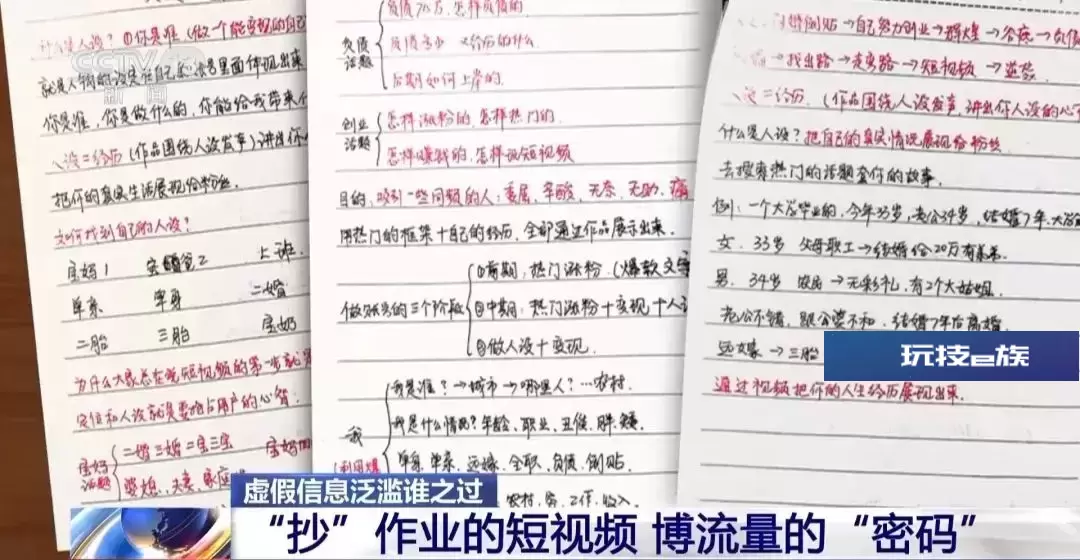 CCTV 13
新闻
什么是人设？①你是谁（做一个能变现的自己
就是人物的设定在自己的账号里面体现出来
你是谁，你是做什么的，你能给我带来什
人设=经历（作品围绕人设发声）讲出你
把你的真实生活展现给粉丝
如何找到自己的人设？
宝妈1 宝爸2 上班
单亲 单身 二婚
二胎 三胎 宝奶
为什么大家总在说短视频的第一步就
定位和人设就是要抢占用户的心智：
宝妈话题
二婚 三婚 二宝 三宝 宝妈
婆媳、夫妻、家庭
负债话题
负债 万，怎样负债的
负债多少 又经历的什么
后期如何上岸的
创业话题
怎样涨粉的，怎样热门的
怎样赚钱的，怎样做短视频
目的：吸引一些同频的人：委屈，辛酸，无奈，无助，痛
用热门的框架+自己的经历，全部通过作品展示出来
做账号的三个阶段
①前期：热门涨粉（爆款文字
②中期：热门涨粉+变现+人设
③做人设+变现
我
我是谁？→城市→哪里人？…农村
我是什么情况？年龄、职业、丑、矮、胖、矮
单身，单亲，远嫁，全职，负债，倒贴
（利用爆
农村，穷，工作，收入
倒贴→自己努力创业→辉煌→谷底→负债
→找出路→走弯路→短视频→逆袭
人设=经历（作品围绕人设发声，讲出你人设的心
什么是人设？把自己的真实情况展现给粉丝
去搜索热门的话题套你的故事
例：一个大龄毕业的，今年33岁，老公34岁，结婚7年，大龄
女：33岁 父母职工→结婚给20万有嫁妆
男：34岁 农民→无彩礼，有2个大姑姐
老公不错，跟公婆不和，结婚7年后离婚
远嫁→三胎
通过视频把你的人生经历展现出来
玩技e族
虚假信息泛滥谁之过
“抄”作业的短视频 博流量的“密码”